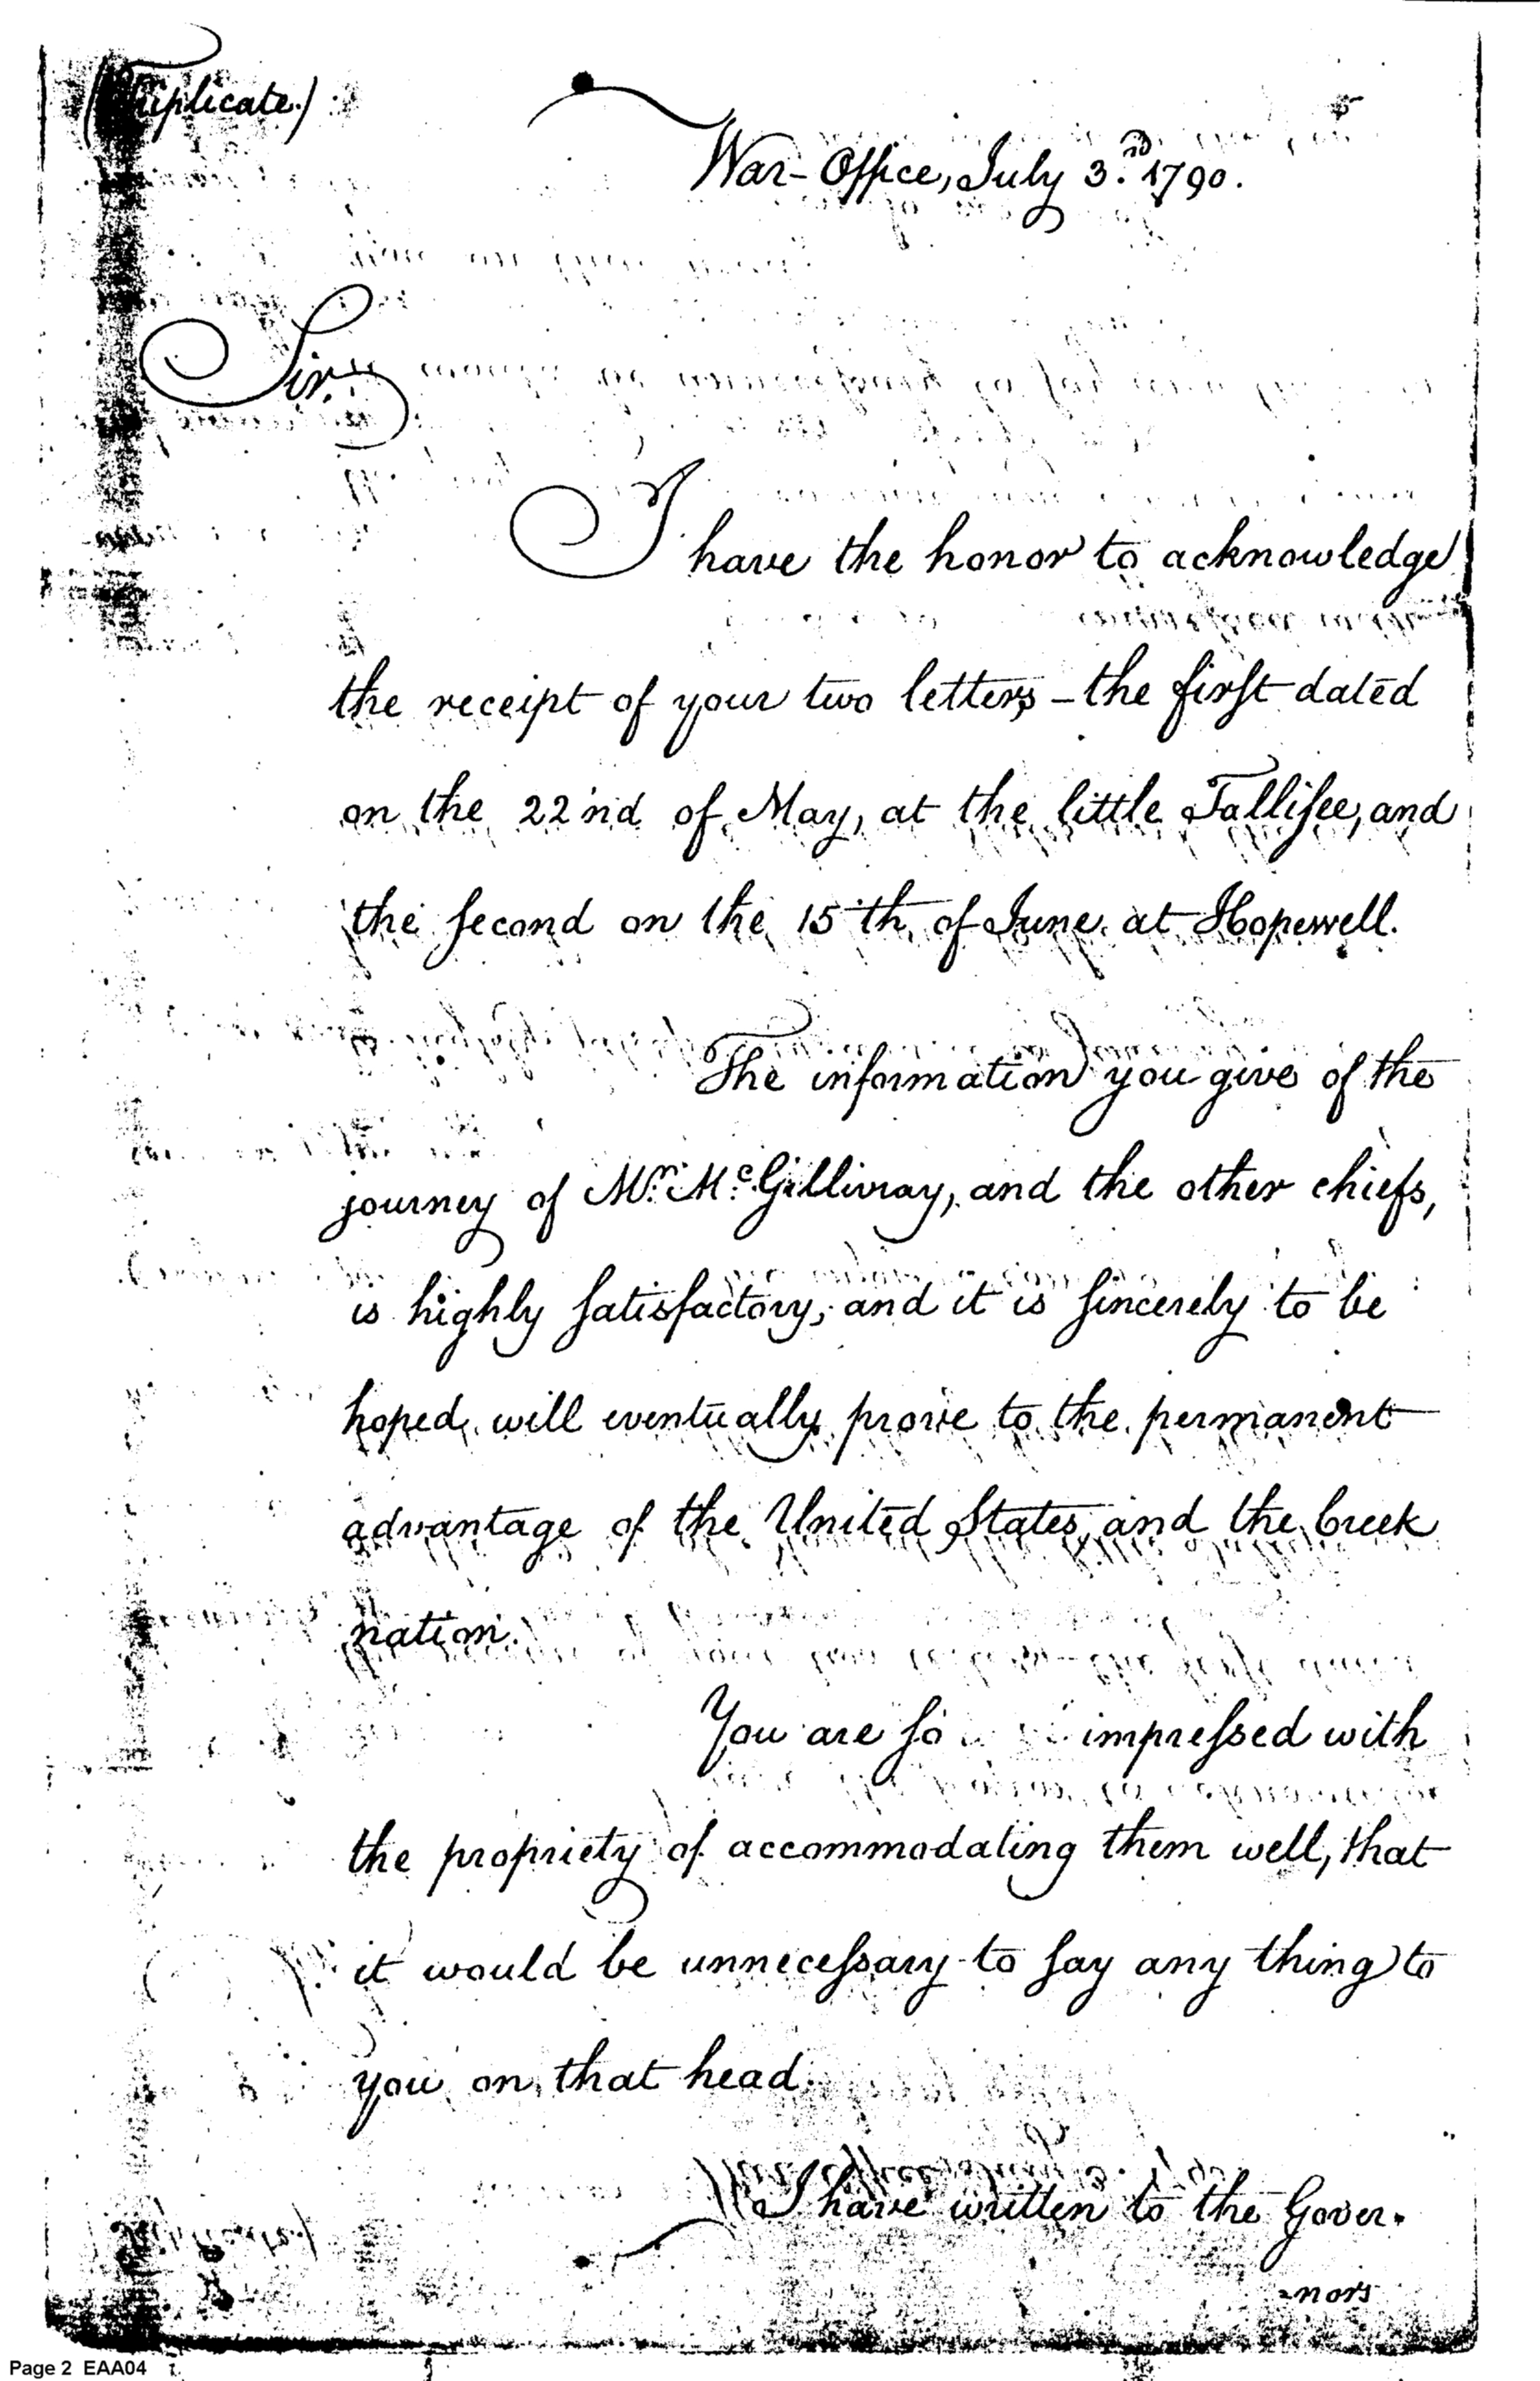 (Duplicate.)
War-Office, July 3.rd 1790.
Sir.
I have the honor to acknowledge
the receipt of your two letters - the first dated
on the 22nd of May, at the little Tallisee, and
the second on the 15th of June at Hopewell.
The information you give of the
journey of Mr. Mc.Gillivray, and the other chiefs,
is highly satisfactory, and it is sincerely to be
hoped will eventually prove to the permanent
advantage of the United States, and the Creek
nation.
You are so impressed with
the propriety of accommodating them well, that
it would be unnecessary to say any thing to
you on that head.
I have written to the Gover-
-nors
Page 2 EAA04